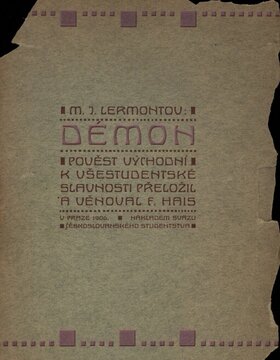 M. J. LERMONTOV:
DÉMON
POVĚST VÝCHODNÍ
K VŠESTUDENTSKÉ
SLAVNOSTI PŘELOŽIL
A VĚNOVAL F. HAIS
V PRAZE 1906. NÁKLADEM SVAZU
ČESKOSLOVANSKÉHO STUDENTSTVA